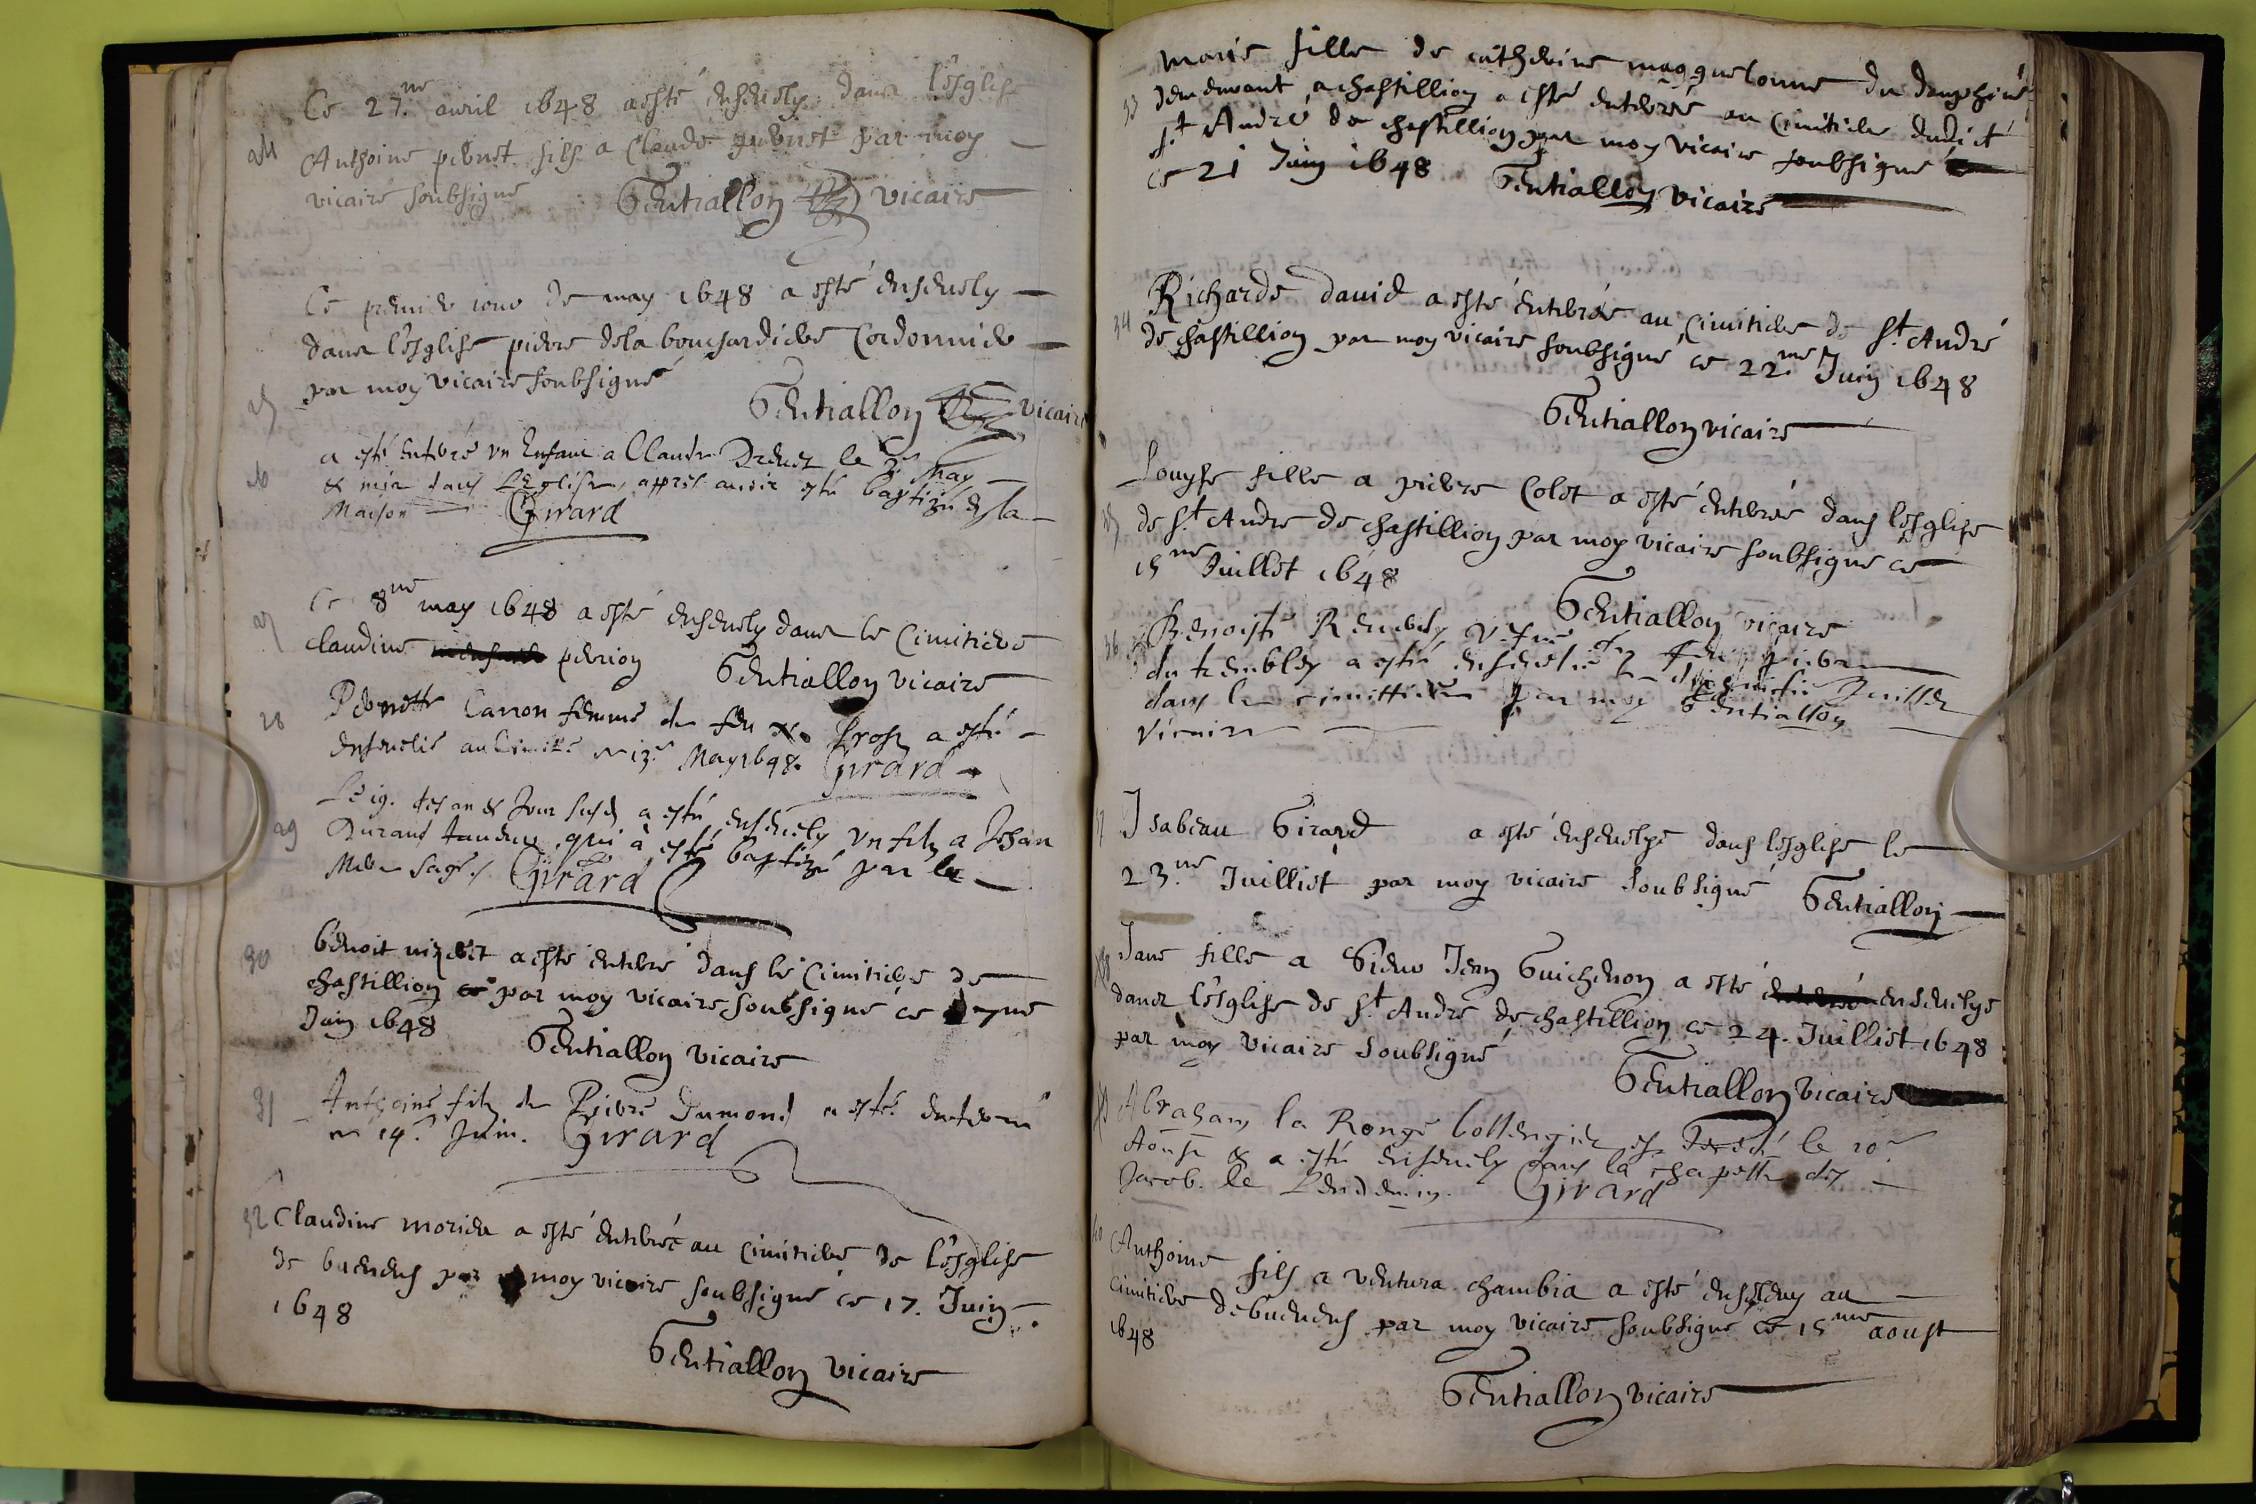 Ce 27.me avril 1648 a esté ensevely dans l'esglise
24
Anthoine pernet fils a Claude pernet par moy
vicaire soubsigné Gentiallon vicaire
Ce premier iour de may 1648 a esté ensevely
dans l'esglise pierre dela bouchardiere Cordonnier
par moy vicaire soubsigné
25
Gentiallon vicaire
a esté enterré un Enfant a Claude le 3e May
26
& mis dans l'Eglise, appres avoir esté baptizé en la
Maison Girard
Ce 8me may 1648 a esté ensevely dans le Cimitiere
27
claudine perrion Gentiallon vicaire
28
Pernette Carron femme de feu Gros a esté
ensevelie au Cimite. ce 13e May 1648. Girard
Le 19. des an & Jour susd a esté ensevely un filz a Jehan
29
Durand qui à esté baptizé par la
Mere sage / Girard
30
benoit a esté enterré dans le Cimitiere de
chastillion par moy vicaire soubsigné ce
Juin 1648
Gentiallon vicaire
31
Anthoine filz de Pierre Dumond a esté enterré
ce 14.e Juin. Girard
32
Claudine morier a esté enterrée au cimitiere de l'esglise
de buenens par moy vicaire soubsigné ce 17. Juin
1648
Gentiallon vicaire
Marie fille de catherine magguelonne du dauphiné
33
demeurant a chastillion a esté enterrée au Cimitiere dudict
st André de chastillion par moy vicaire soubsigné
ce 21 Juin 1648 Gentiallon vicaire
Richarde david a esté enterrée au Cimitiere de st. André
34
de chastillion par moy vicaire soubsigné ce 22.me Juin 1648
Gentiallon vicaire
Louyse fille a pierre Colet a esté enterrée dans l'esglise
35
de st André de chastillion par moy vicaire soubsigné ce
15me Juillet 1648
Gentiallon vicaire
36
Benoiste
du trembley a esté ensevelie Juillet
dans le cimittiere par moy Gentiallon
Vicaire
37
Isabeau Girard a esté ensevelye dans l'esglise le
23.me Juilliet par moy vicaire soubsigné Gentiallon
38
Jane fille a Sieur Jean Guichenon a esté ensevelye
dans l'esglise de st André de chastillion ce 24. Juilliet 1648
par moy vicaire soubsigné
Gentiallon vicaire
39
Abraham la Ronge bollengier est decedé le 10e
Aoust & a esté ensevely dans la chapelle des
Jacob. le Lendemin. Girard
40
Anthoine fils a ventura chambia a esté ensevely au
cimitiere de buenens par moy vicaire soubsigné ce 15me aoust
1648
Gentiallon vicaire